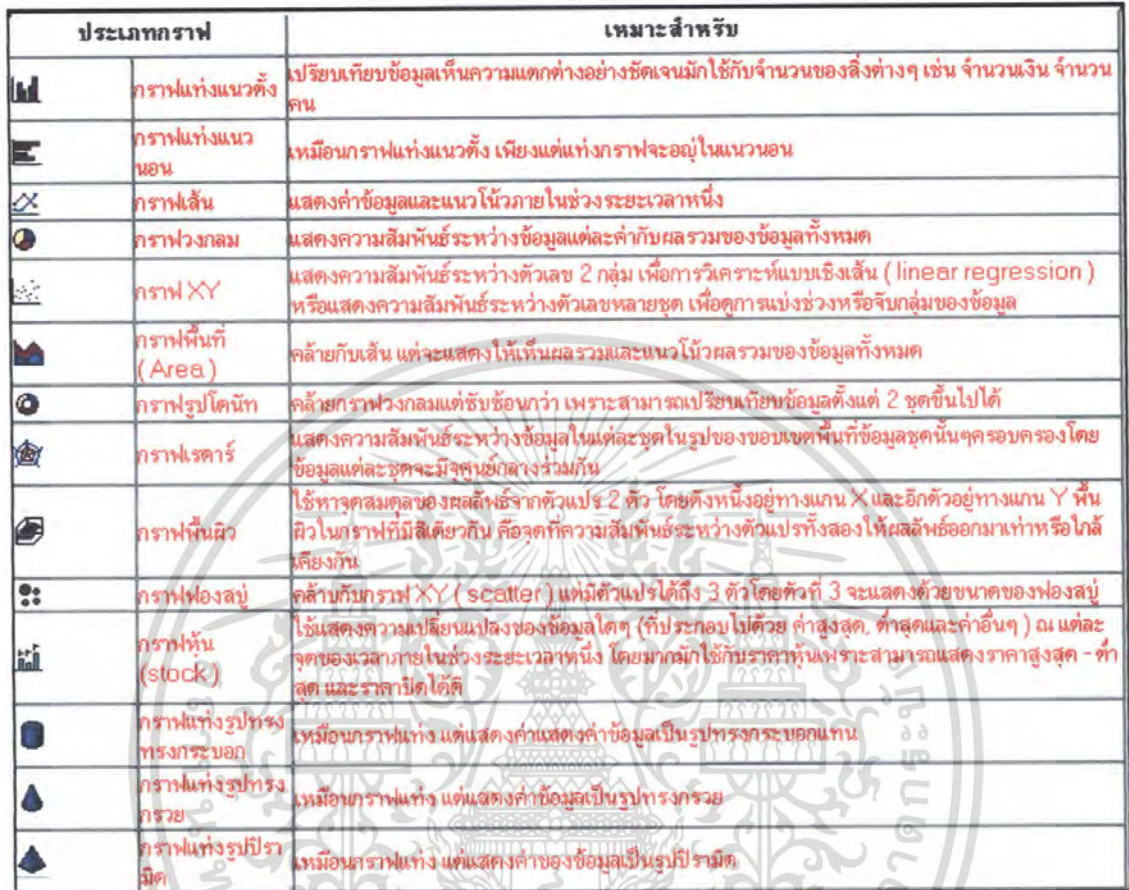 ประเภทกราฟ เหมาะสำหรับ
กราฟแท่งแนวตั้ง เปรียบเทียบข้อมูลเห็นความแตกต่างอย่างชัดเจนมักใช้กับจำนวนของสิ่งต่างๆ เช่น จำนวนเงิน จำนวน
คน
กราฟแท่งแนว
นอน เหมือนกราฟแท่งแนวตั้ง เพียงแต่แท่งกราฟจะอญู่ในแนวนอน
กราฟเส้น แสดงค่าข้อมูลและแนวโน้วภายในช่วงระยะเวลาหนึ่ง
กราฟวงกลม แสดงความสัมพันธ์ระหว่างข้อมูลแต่ละค่ากับผลรวมของข้อมูลทั้งหมด
กราฟ XY แสดงความสัมพันธ์ระหว่างตัวเลข 2 กลุ่ม เพื่อการวิเคราะห์แบบเชิงเส้น ( linear regression )
หรือแสดงความสัมพันธ์ระหว่างตัวเลขหลายชุด เพื่อดูการแบ่งช่วงหรือจับกลุ่มของข้อมูล
กราฟพื้นที่
( Area ) คล้ายกับเส้น แต่จะแสดงให้เห็นผลรวมและแนวโน้วผลรวมของข้อมูลทั้งหมด
กราฟรูปโดนัท คล้ายกราฟวงกลมแต่ซับซ้อนกว่า เพราะสามารถเปรียบเทียบข้อมูลตั้งแต่ 2 ชุดขึ้นไปได้
กราฟเรดาร์ แสดงความสัมพันธ์ระหว่างข้อมูลในแต่ละชุดในรูปของขอบเขตพื้นที่ข้อมูลชุดนั้นๆครอบครองโดย
ข้อมูลแต่ละชุดจะมีจุดศูนย์กลางร่วมกัน
กราฟพื้นผิว ใช้หาจุดสมดุลของผลลัพธ์จากตัวแปร 2 ตัว โดยตังหนึ่งอยู่ทางแกน X และอีกตัวอยู่ทางแกน Y พื้น
ผิวในกราฟที่มีสีเดียวกัน คือจุดที่ความสัมพันธ์ระหว่างตัวแปรทั้งสองให้ผลลัพธ์ออกมาเท่าหรือใกล้
เคียงกัน
กราฟฟองสบู่ คล้ายกับกราฟ XY ( scatter ) แต่มีตัวแปรได้ถึง 3 ตัวโดยตัวที่ 3 จะแสดงด้วยขนาดของฟองสบู่
กราฟหุ้น
(stock) ใช้แสดงความเปลี่ยนแปลงของข้อมูลใดๆ (ที่ประกอบไปด้วย ค่าสูงสุด, ต่ำสุดและค่าอื่นๆ ) ณ แต่ละ
จุดของเวลาภายในช่วงระยะเวลาหนึ่ง โดยมากมักใช้กับราคาหุ้นเพราะสามารถแสดงราคาสูงสุด - ต่ำ
สุด และราคาปิดได้ดี
กราฟแท่งรูปทรง
ทรงกระบอก เหมือนกราฟแท่ง แต่แสดงค่าแสดงค่าข้อมูลเป็นรูปทรงกระบอกแทน
กราฟแท่งรูปทรง
กรวย เหมือนกราฟแท่ง แต่แสดงค่าข้อมูลเป็นรูปทรงกรวย
กราฟแท่งรูปปิรา
มิด เหมือนกราฟแท่ง แต่แสดงค่าของข้อมูลเป็นรูปปิรามิด